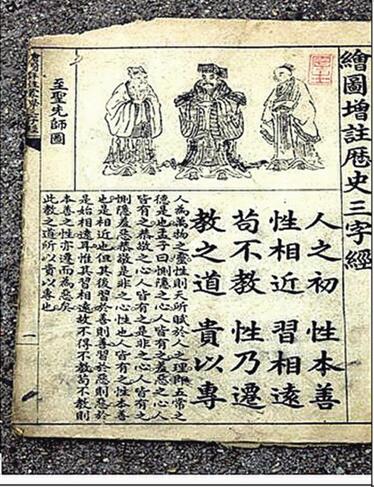 繪圖增註歷史三字經
至聖先師圖
人之初　性本善
性相近　習相遠
苟不教　性乃遷
教之道　貴以專
人為萬物之靈性則天所賦於人之理即五常之
德是也孟子曰惻隱之心人皆有之羞惡之心人
皆有之恭敬之心人皆有之是非之心人皆有之
惻隱羞惡恭敬是非之心性也人皆有之性本善
也是相近也但其後習於善則善習於惡則惡於
是始相遠耳惟其習相遠故不得不教苟不教則
本善之性亦遷而為惡矣
此教之道所以貴以專也
一